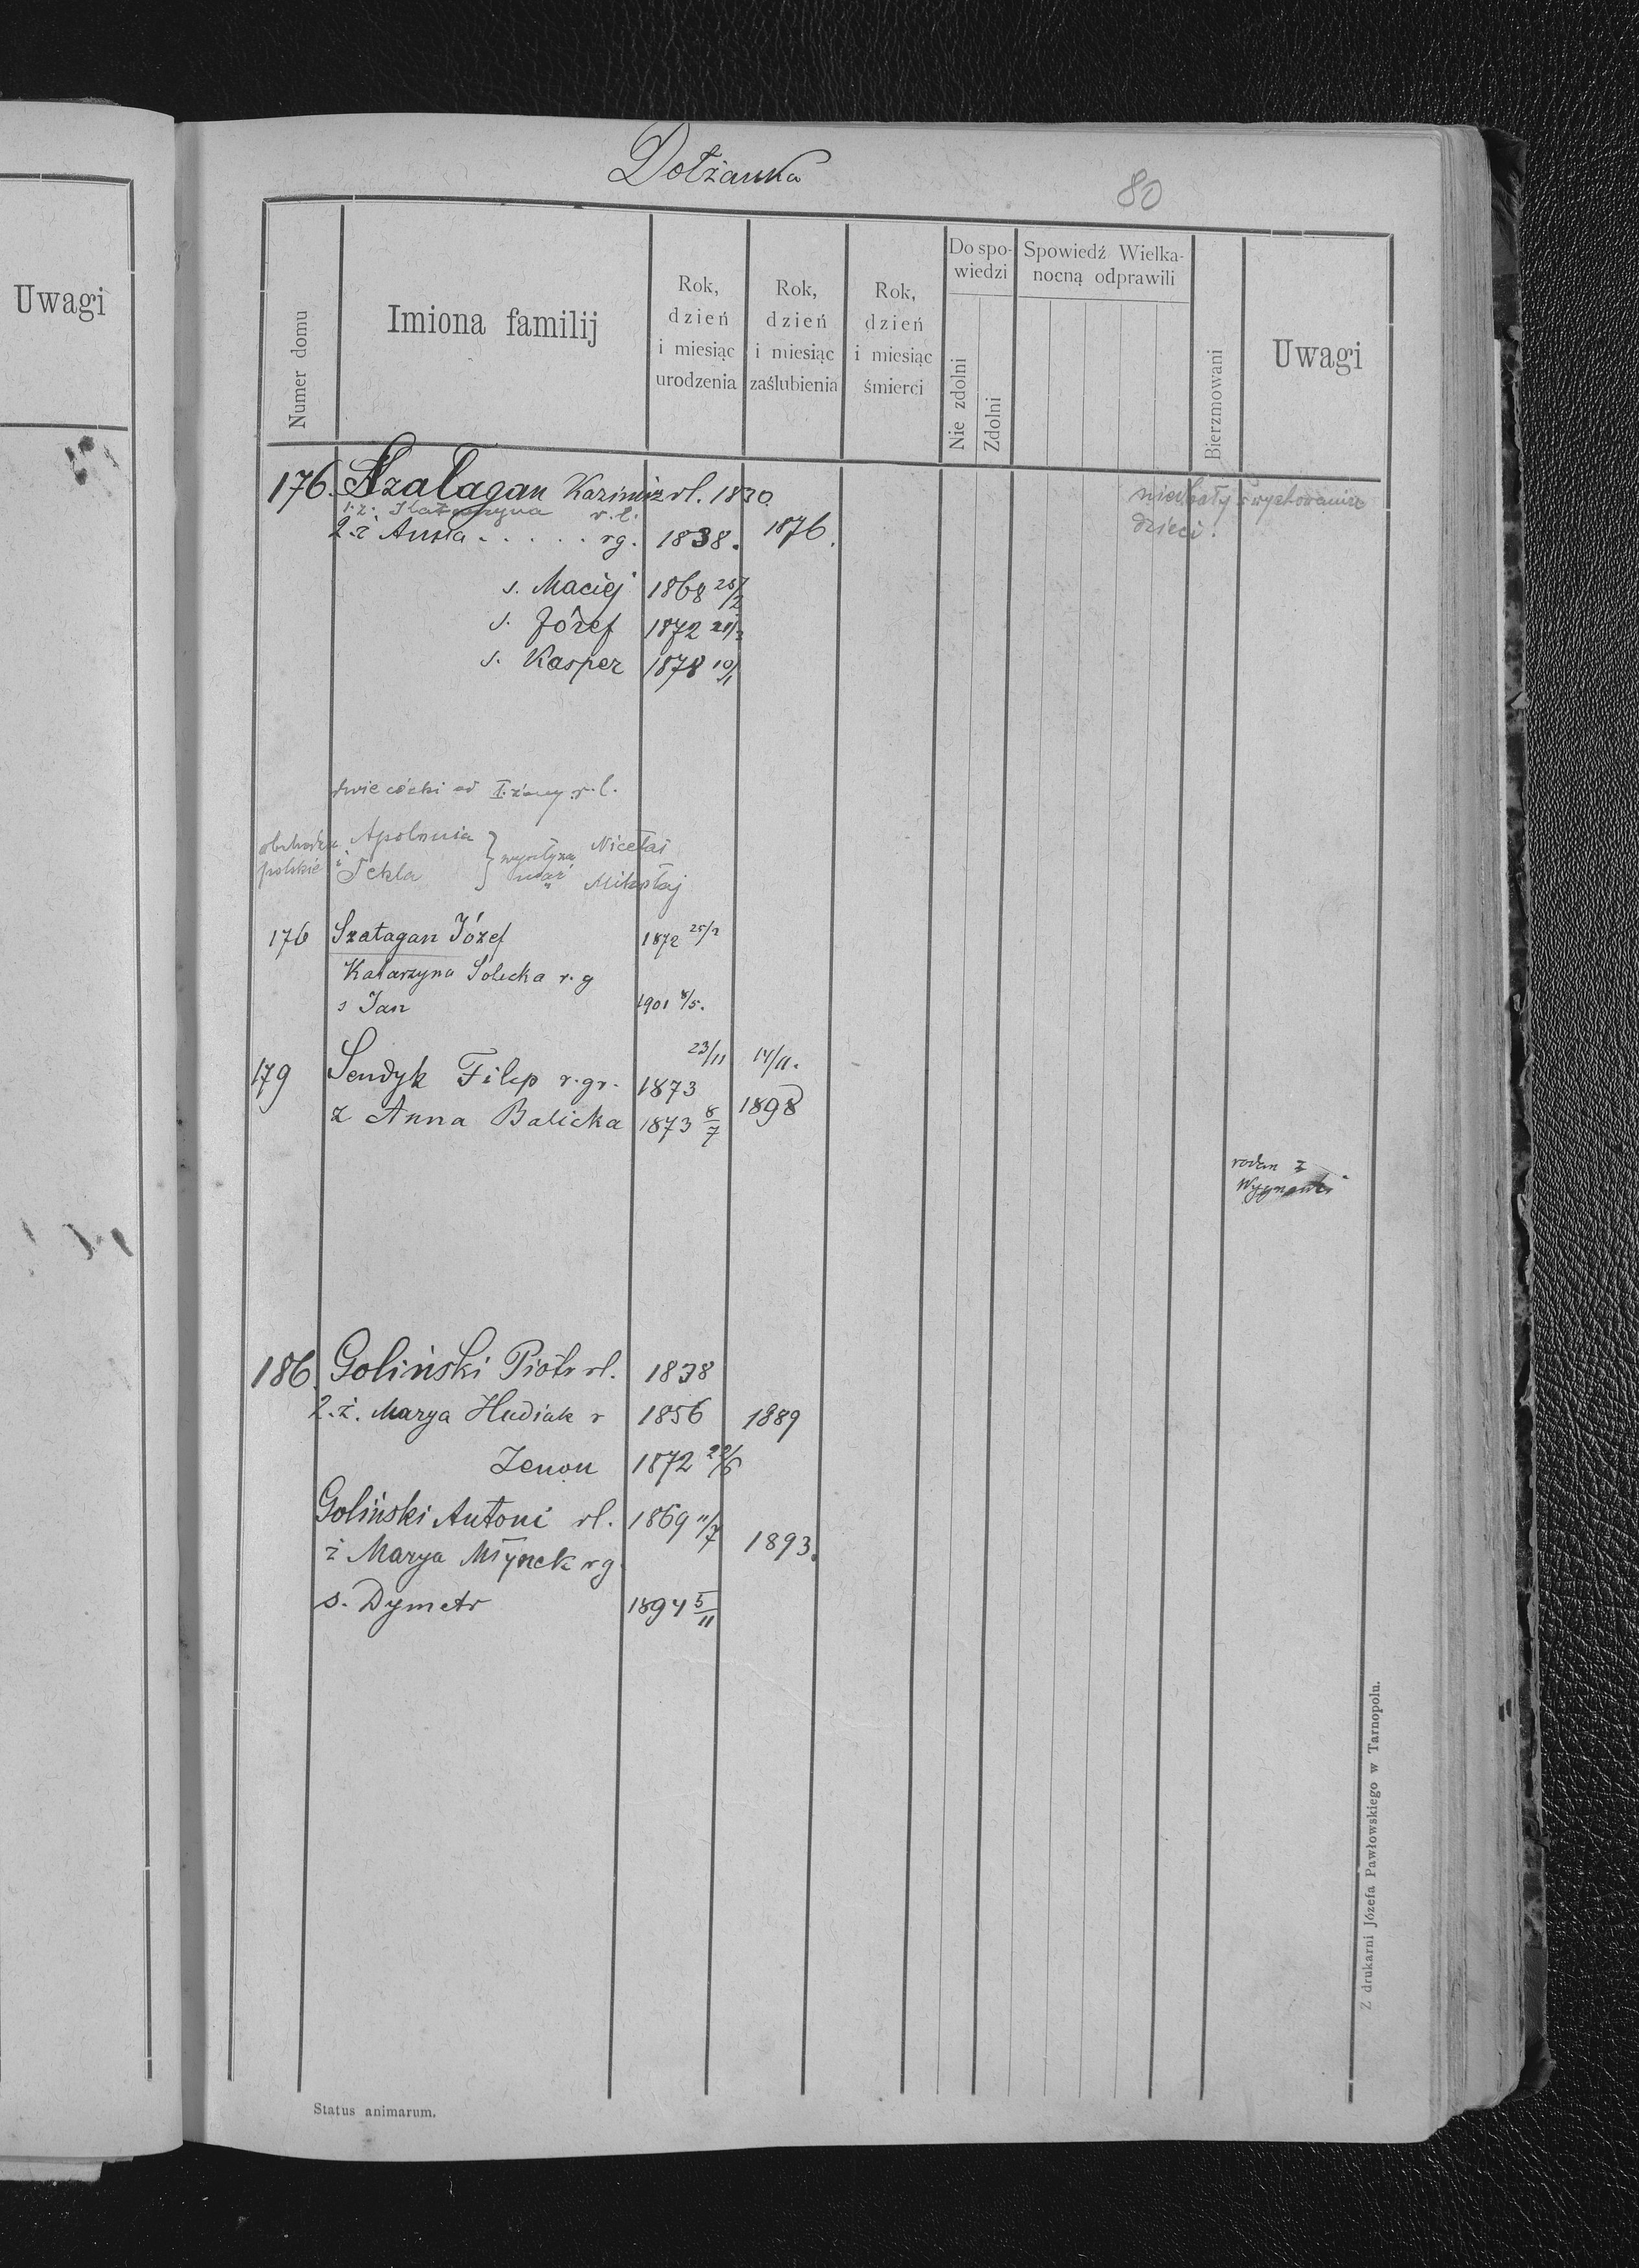 Uwagi
Dołżanka
80
Numer domu
Imiona familij
Rok, dzień i miesiąc urodzenia
Rok, dzień i miesiąc zaślubienia
Rok, dzień i miesiąc śmierci
Do spowiedzi
Nie zdolni
Zdolni
Spowiedź Wielkanocną odprawili
Bierzmowani
Uwagi
176. Szalagan Kazimierz rl. 1830
1. ż. Katarzyna r. l.
2. ż Anna . . . . . rg. 1838. 1876.
s. Maciej 1868 25/2
s. Józef 1872 21/2
s. Kasper 1878 10/11
dzieci.
dwie córki od I. żony r. l.
polskie
Apolonia
i Tekla
mąż
Mikołaj
176 Szałagan Józef 1872 25/2
Katarzyna Solecka r. g
s Jan 1901 8/5.
179 Sendyk Filip r. gr. 1873 23/11 14/11. 1898
ż Anna Balicka 1873 8/7
rodem z
Wygnanki
186. Goliński Piotr rl. 1838
2. ż. Marya Hudiak r 1856 1889
Zenon 1872 22/6
Goliński Antoni rl. 1869 11/7 1893.
ż Marya Młynek rg.
s. Dymetr 1894 5/11
Z drukarni Józefa Pawłowskiego w Tarnopolu.
Status animarum.